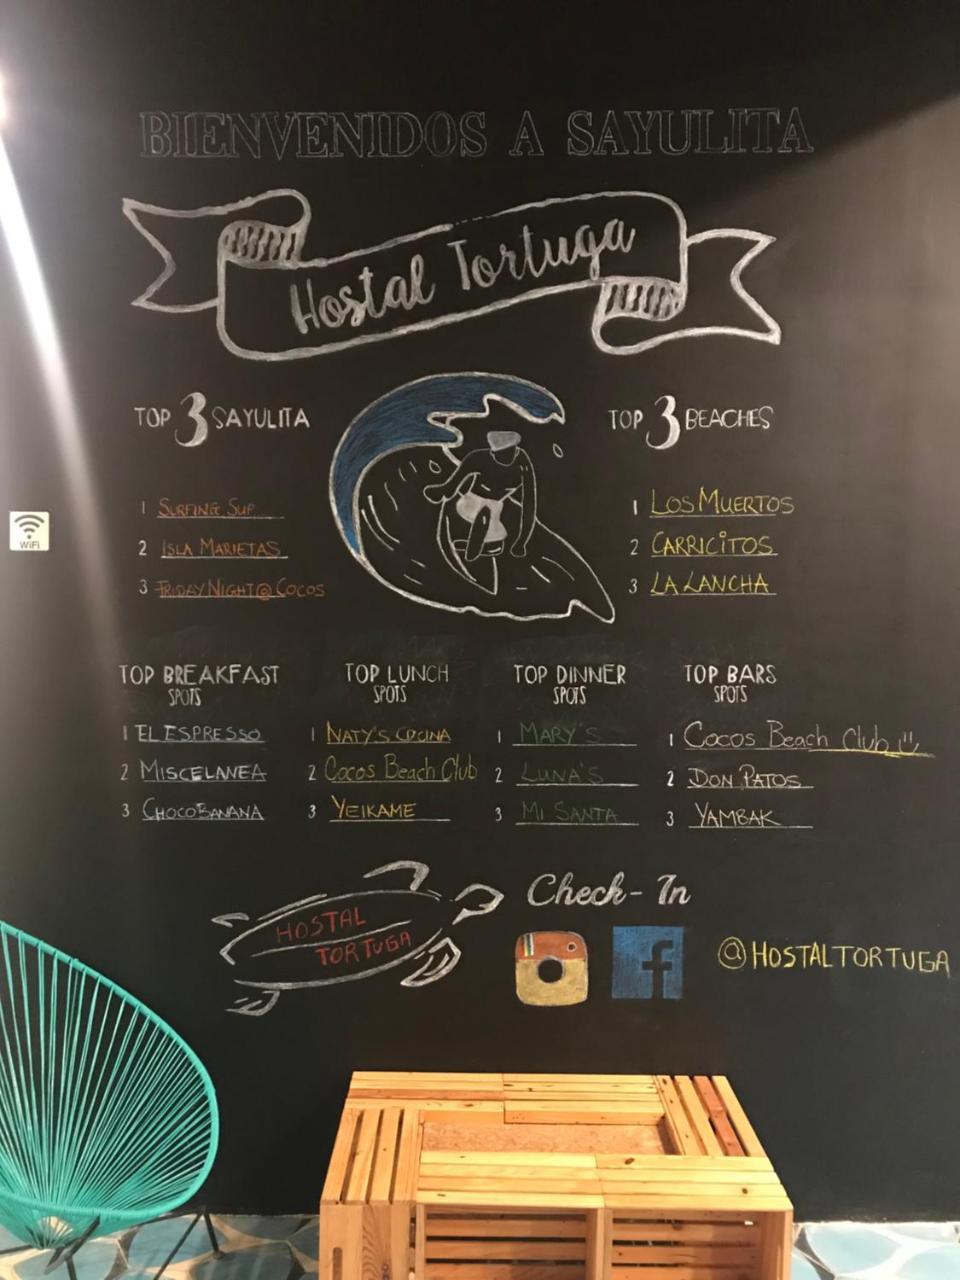 BIENVENIDOS A SAYULITA
Hostal Tortuga
TOP 3 SAYULITA
1 SURFING, SUP
2 ISLA MARIETAS
3 FRIDAY NIGHT @ COCOS
TOP 3 BEACHES
1 LOS MUERTOS
2 CARRICITOS
3 LA LANCHA
WiFi
TOP BREAKFAST
SPOTS
1 EL ESPRESSO
2 MISCELANEA
3 CHOCOBANANA
TOP LUNCH
SPOTS
1 NATY'S COCINA
2 Cocos Beach Club
3 YEIKAME
TOP DINNER
SPOTS
1 MARY'S
2 LUNA'S
3 MI SANTA
TOP BARS
SPOTS
1 Cocos Beach Club
2 DON PATOS
3 YAMBAK
HOSTAL
TORTUGA
Check-In
f
@HOSTALTORTUGA